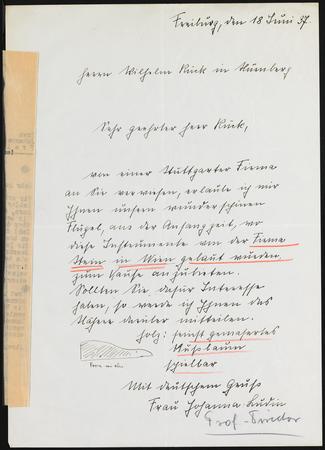 Freiburg, den 18 Juni 37.
Herrn Wilhelm Rück in Nürnberg
Sehr geehrter Herr Rück,
von einer Stuttgarter Firma
an Sie verwiesen, erlaube ich mir
Ihnen unsern wunderschönen
Flügel, aus der Anfangzeit, wo
diese Instrumente von der Firma
Stein in Wien gebaut wurden,
zum Kaufe anzubieten.
Sollten Sie dafür Interesse
haben, so werde ich Ihnen das
Nähere darüber mitteilen.
Holz: feinst gemasertes
Nußbaum
spielbar
Form von oben
Mit deutschem Gruss
Frau Johanna
Prof.